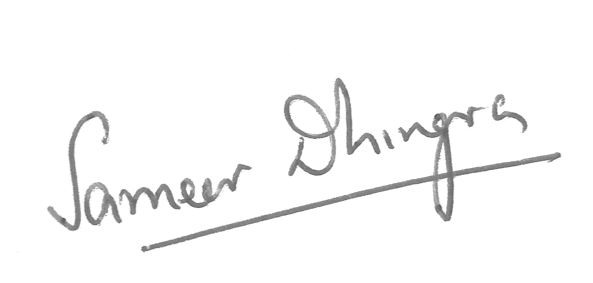 Sameer Dhingra